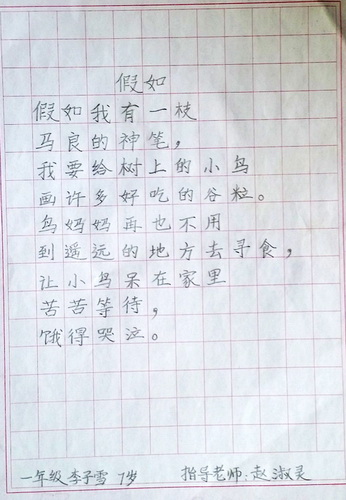 假如
假如我有一枝
马良的神笔，
我要给树上的小鸟
画许多好吃的谷粒。
鸟妈妈再也不用
到遥远的地方去寻食，
让小鸟呆在家里
苦苦等待，
饿得哭泣。
一年级 李子雪 7岁 指导老师：赵淑灵